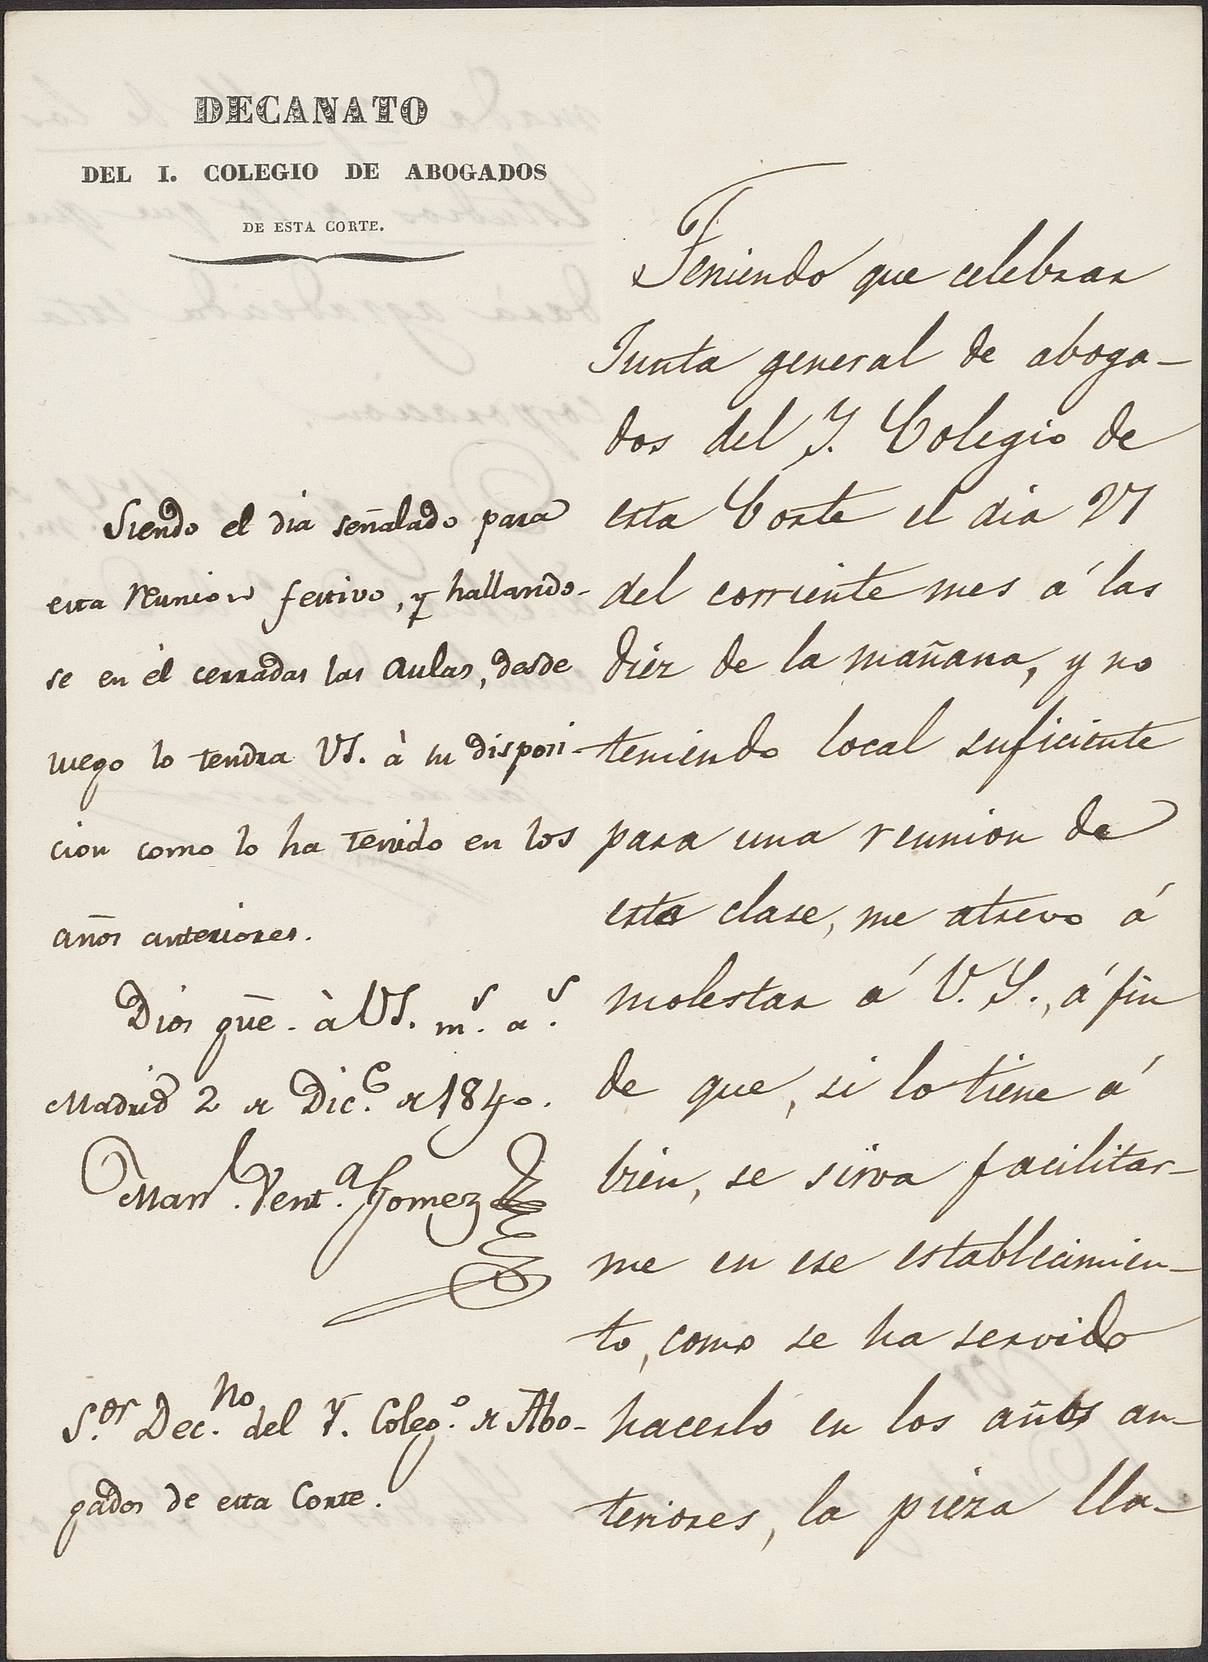 DECANATO
DEL I. COLEGIO DE ABOGADOS
DE ESTA CORTE.
Teniendo que celebrar
Junta general de aboga-
dos del Y. Colegio de
esta Corte el dia
del corriente mes á las
diez de la mañana, y no
teniendo local suficiente
para una reunion de
esta clase, me atrevo á
molestar á V. S., á fin
de que, si lo tiene á
bien, se sirva facilitar-
me en ese establecimien-
to, como se ha servido
hacerlo en los años an-
teriores, la pieza lla-
Siendo el dia señalado para
esta reunion festivo, y hallando-
se en él cerradas las aulas, desde
luego lo tendra VS. à su disposi-
cion como lo ha tenido en los
años anteriores.
Dios gūe. à VS. m.s a.s
Madrid 2 de Dic.e de 1840.
Man.l Vent.a Gomez
S.or Dec.no del Y. Coleg.o de Abo-
gados de esta Corte.